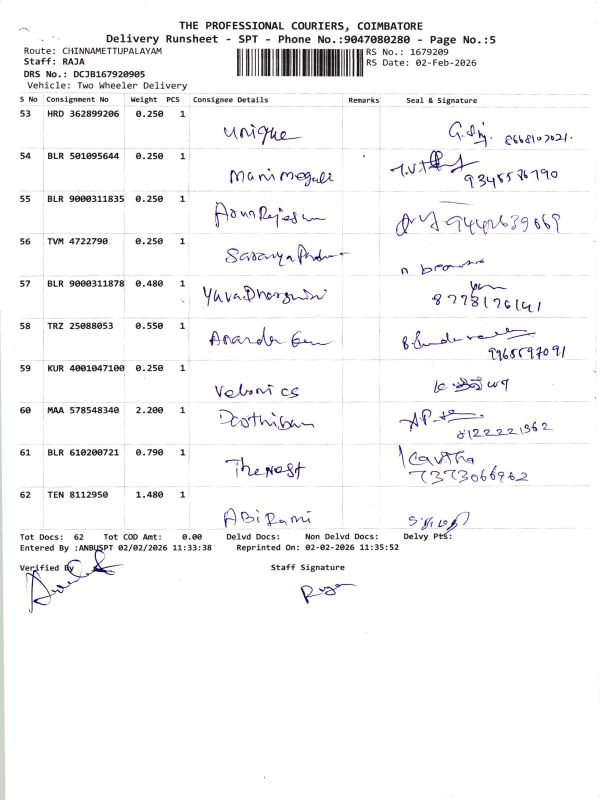 THE PROFESSIONAL COURIERS, COIMBATORE
Delivery Runsheet - SPT - Phone No.:9047080280 - Page No.:5
Route: CHINNAMETTUPALAYAM RS No.: 1679209
Staff: RAJA RS Date: 02-Feb-2026
DRS No.: DCJB167920905
Vehicle: Two Wheeler Delivery
S No Consignment No Weight PCS Consignee Details Remarks Seal & Signature
53 HRD 362899206 0.250 1
unique 8668107021.
54 BLR 501095644 0.250 1
manimegala 9345576790
55 BLR 9000311835 0.250 1
9442639069
56 TVM 4722790 0.250 1
Saranya
57 BLR 9000311878 0.480 1
YuvaDharshini
8778176141
58 TRZ 25088053 0.550 1
9965597091
59 KUR 4001047100 0.250 1
Velonics
60 MAA 578548340 2.200 1
8122221962
61 BLR 610200721 0.790 1
Kavitha
The Nest 7373066962
62 TEN 8112950 1.480 1
ABiRami
Tot Docs: 62 Tot COD Amt: 0.00 Delvd Docs: Non Delvd Docs: Delvy Pts:
Entered By :ANBUSPT 02/02/2026 11:33:38 Reprinted On: 02-02-2026 11:35:52
Verified By Staff Signature
Raja